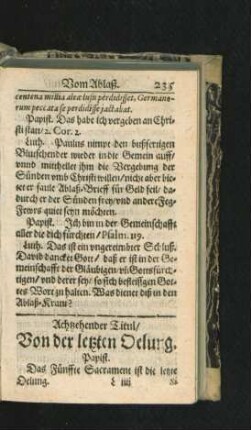 Vom Ablaß. 235
centena millia aleæ lusu perdidisset, Germano-
rum peccata se perdidisse jactabat.
Papist. Das habe ich vergeben an Chri-
sti statt/ 2. Cor. 2.
Luth. Paulus nimpt den bußfertigen
Blutschender wieder in die Gemein auff/
vnnd mittheilet ihm die Vergebung der
Sünden vmb Christi willen/ nicht aber bie-
tet er faule Ablaß-Brieff für Geld feil/ da-
durch er der Sünden frey/ vnd ander Feg-
Fewrs quiet seyn möchten.
Papist. Ich bin in der Gemeinschafft
aller die dich fürchten/ Psalm. 119.
Luth. Das ist ein vngereimbter Schluß.
David dancket Gott/ daß er ist in der Ge-
meinschafft der Gläubigen vñ Gottsfürch-
tigen/ vnd derer sey/ so sich befleissigen Got-
tes Wort zu halten. Was dienet diß in den
Ablaß-Kram?
Achtzehender Titul/
Von der letzten Oelung.
Papist.
Das Fünffte Sacrament ist die letzte
Oelung.